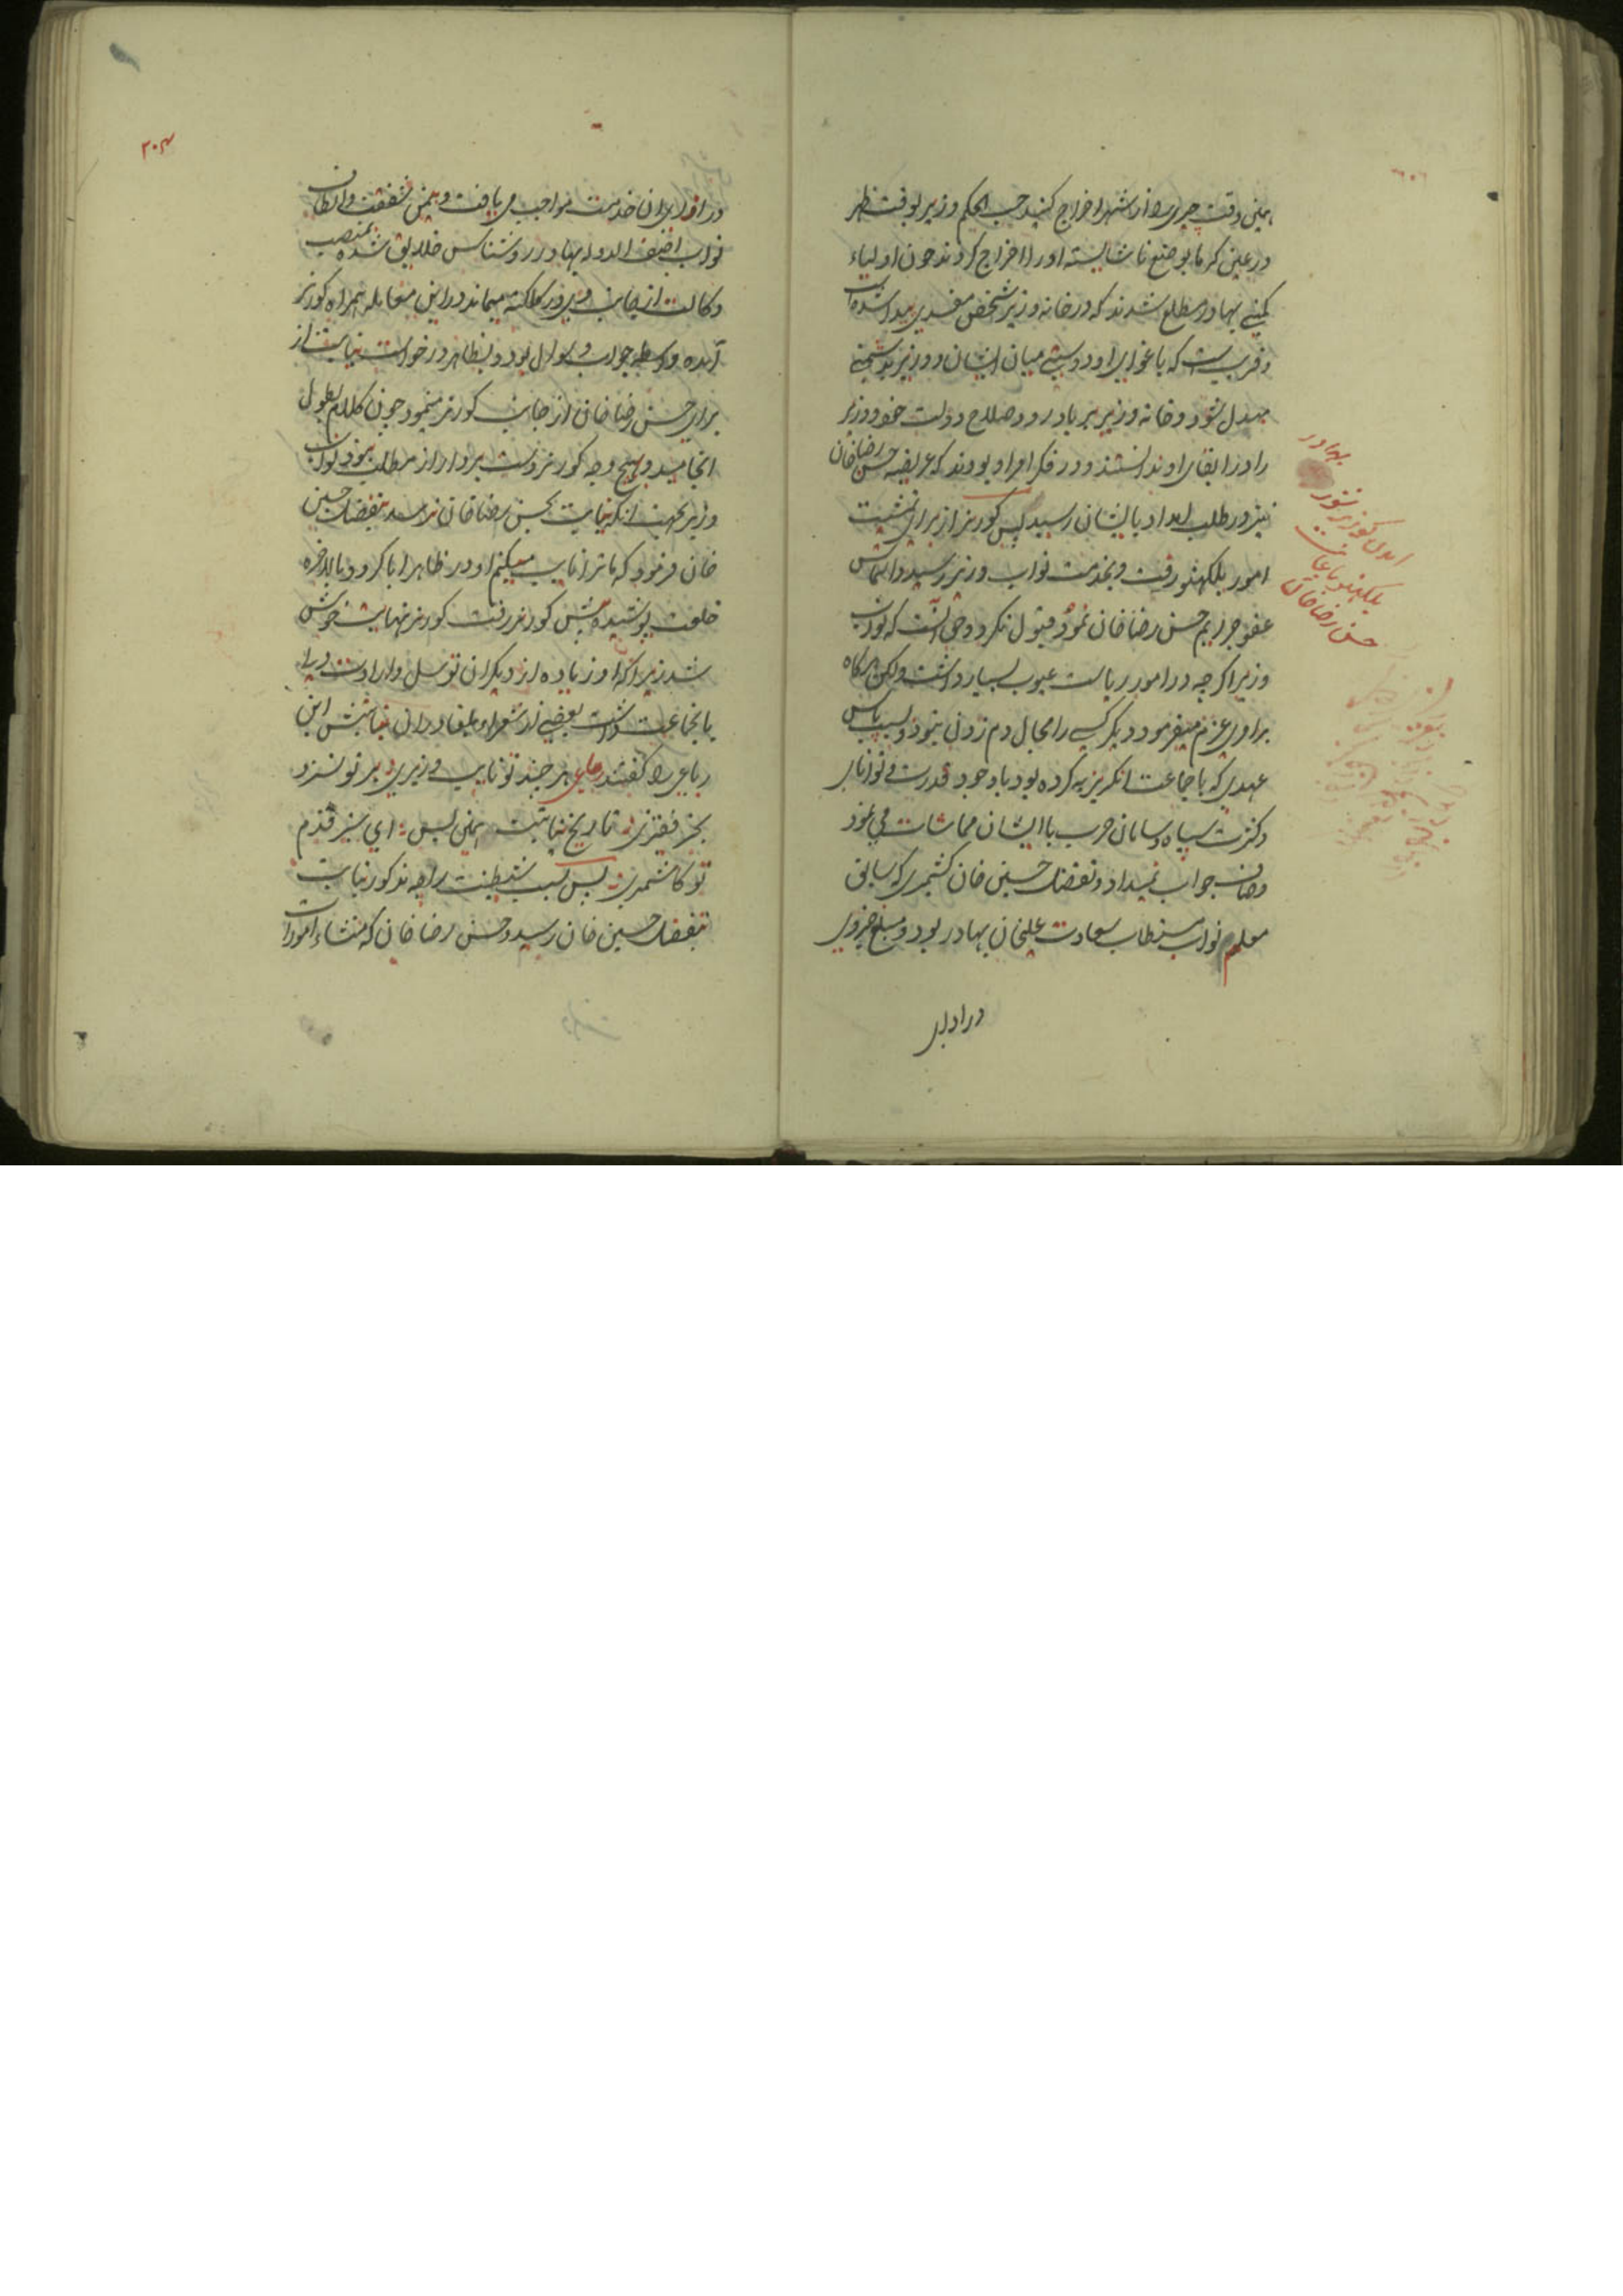 همین وقت چیری را از شهر اخراج کنید حسب الحکم وزیر بوقت ظهر
در عین کرما بوضع ناشایسته او را اخراج کردند چون اولیاء
کمپنی بهادر مطلع شدند که در خانه وزیر شخص مفسدی پیدا شده است
و قریب است که باغوای او دوستی میان ایشان و وزیر بدشمنی
مبدل شود و خانه وزیر برباد رود صلاح دولت خود و وزیر
را در ابقای او ندانستند و در فکر او بودند که عریضه حسن رضا خان
نیز در طلب امداد بایشان رسید پس کورنر از برای تمشیت
امور بلکهنو رفت و بخدمت نواب وزیر رسید و التماس
عفو جرایم حسن رضا خان نمود قبول نکرد و حق آنست که نواب
وزیر اکرچه در امور ریاست عیوب بسیار داشت ولکن هرکاه
برای عزم میفرمود دیکر کسی را مجال دم زدن نبود و بسبب پاس
عهدی که با جماعت انکریزیه کرده بود باوجود قدرت و توانایی
و کثرت سپاه و سامان حرب با ایشان مماشات می نمود
و صاف جواب نمیداد و تفضل حسین خان کشمیری که سابق
معلم نواب مستطاب سعادت علیخان بهادر بود و مبلغ ضروری
در اوایل
بهادر
کورنر
بلکهنو
حسن رضا خان
در اوایل از ان خدمت مواجب می یافت و بیمن شفقت و الطاف
نواب اصف الدوله بهادر روشناس خلایق شده بمنصب
وکالت از جانب وزیر در کلکته میماند و در این معامله همراه کورنر
آمده واسطه جواب و سوال بود و بظاهر درخواست نیابت از
برای حسن رضا خان از جانب کورنر مینمود چون کلام بطول
انجامید و بهیچ وجه کورنر دست بردار از مطلب نبود نواب
وزیر بجهت انکه نیابت بحسن رضا خان نرسد بتفضل حسین
خان فرمود که ما ترا نایب میکنم او در ظاهر ابا کرد و بالاخره
خلعت پوشیده پیش کورنر رفت کورنر نهایت خوش
شد زیرا که او زیاده از دیکران توسل و ارادت
بانجماعت داشت بعضی از شعراء نیابتش این
رباعی را کفتند رباعی هر چند تو نایب وزیری بر تو نسزد
بجز فقیری تاریخ نیابتت همین بس ای سبز قدم
تو کاشمیری پس بسبب شیطنت راجه مذکور نیابت
بتفضل حسین خان رسید و حسن رضا خان که منشاء امورات